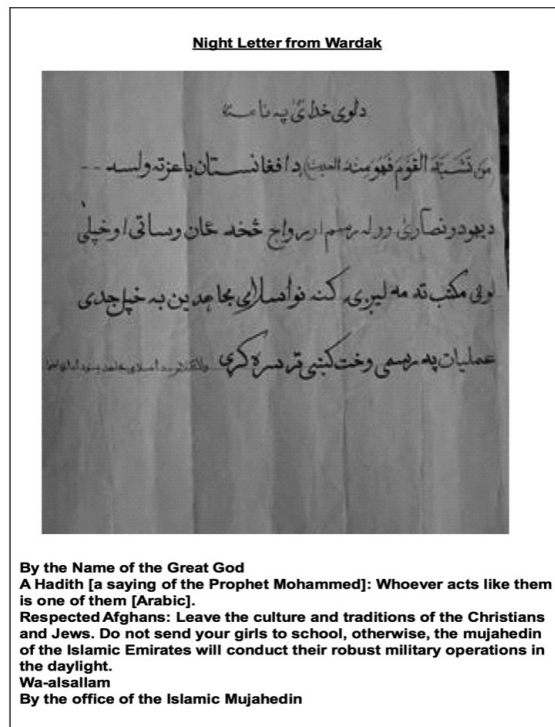 Night Letter from Wardak
دلوی خدای په نامه
من تشبه القوم فهو منه د افغانستان باعزته ولسه --
د یهود و نصاری له رسم او رواج څخه ځان وساتی او خپلی
لوڼی مکتب ته مه لیږی. کنه نو اسلامی مجاهدین به خپل جدی
عملیات په رسمی وخت کښی تر سره کړی
By the Name of the Great God
A Hadith [a saying of the Prophet Mohammed]: Whoever acts like them
is one of them [Arabic].
Respected Afghans: Leave the culture and traditions of the Christians
and Jews. Do not send your girls to school, otherwise, the mujahedin
of the Islamic Emirates will conduct their robust military operations in
the daylight.
Wa-alsallam
By the office of the Islamic Mujahedin